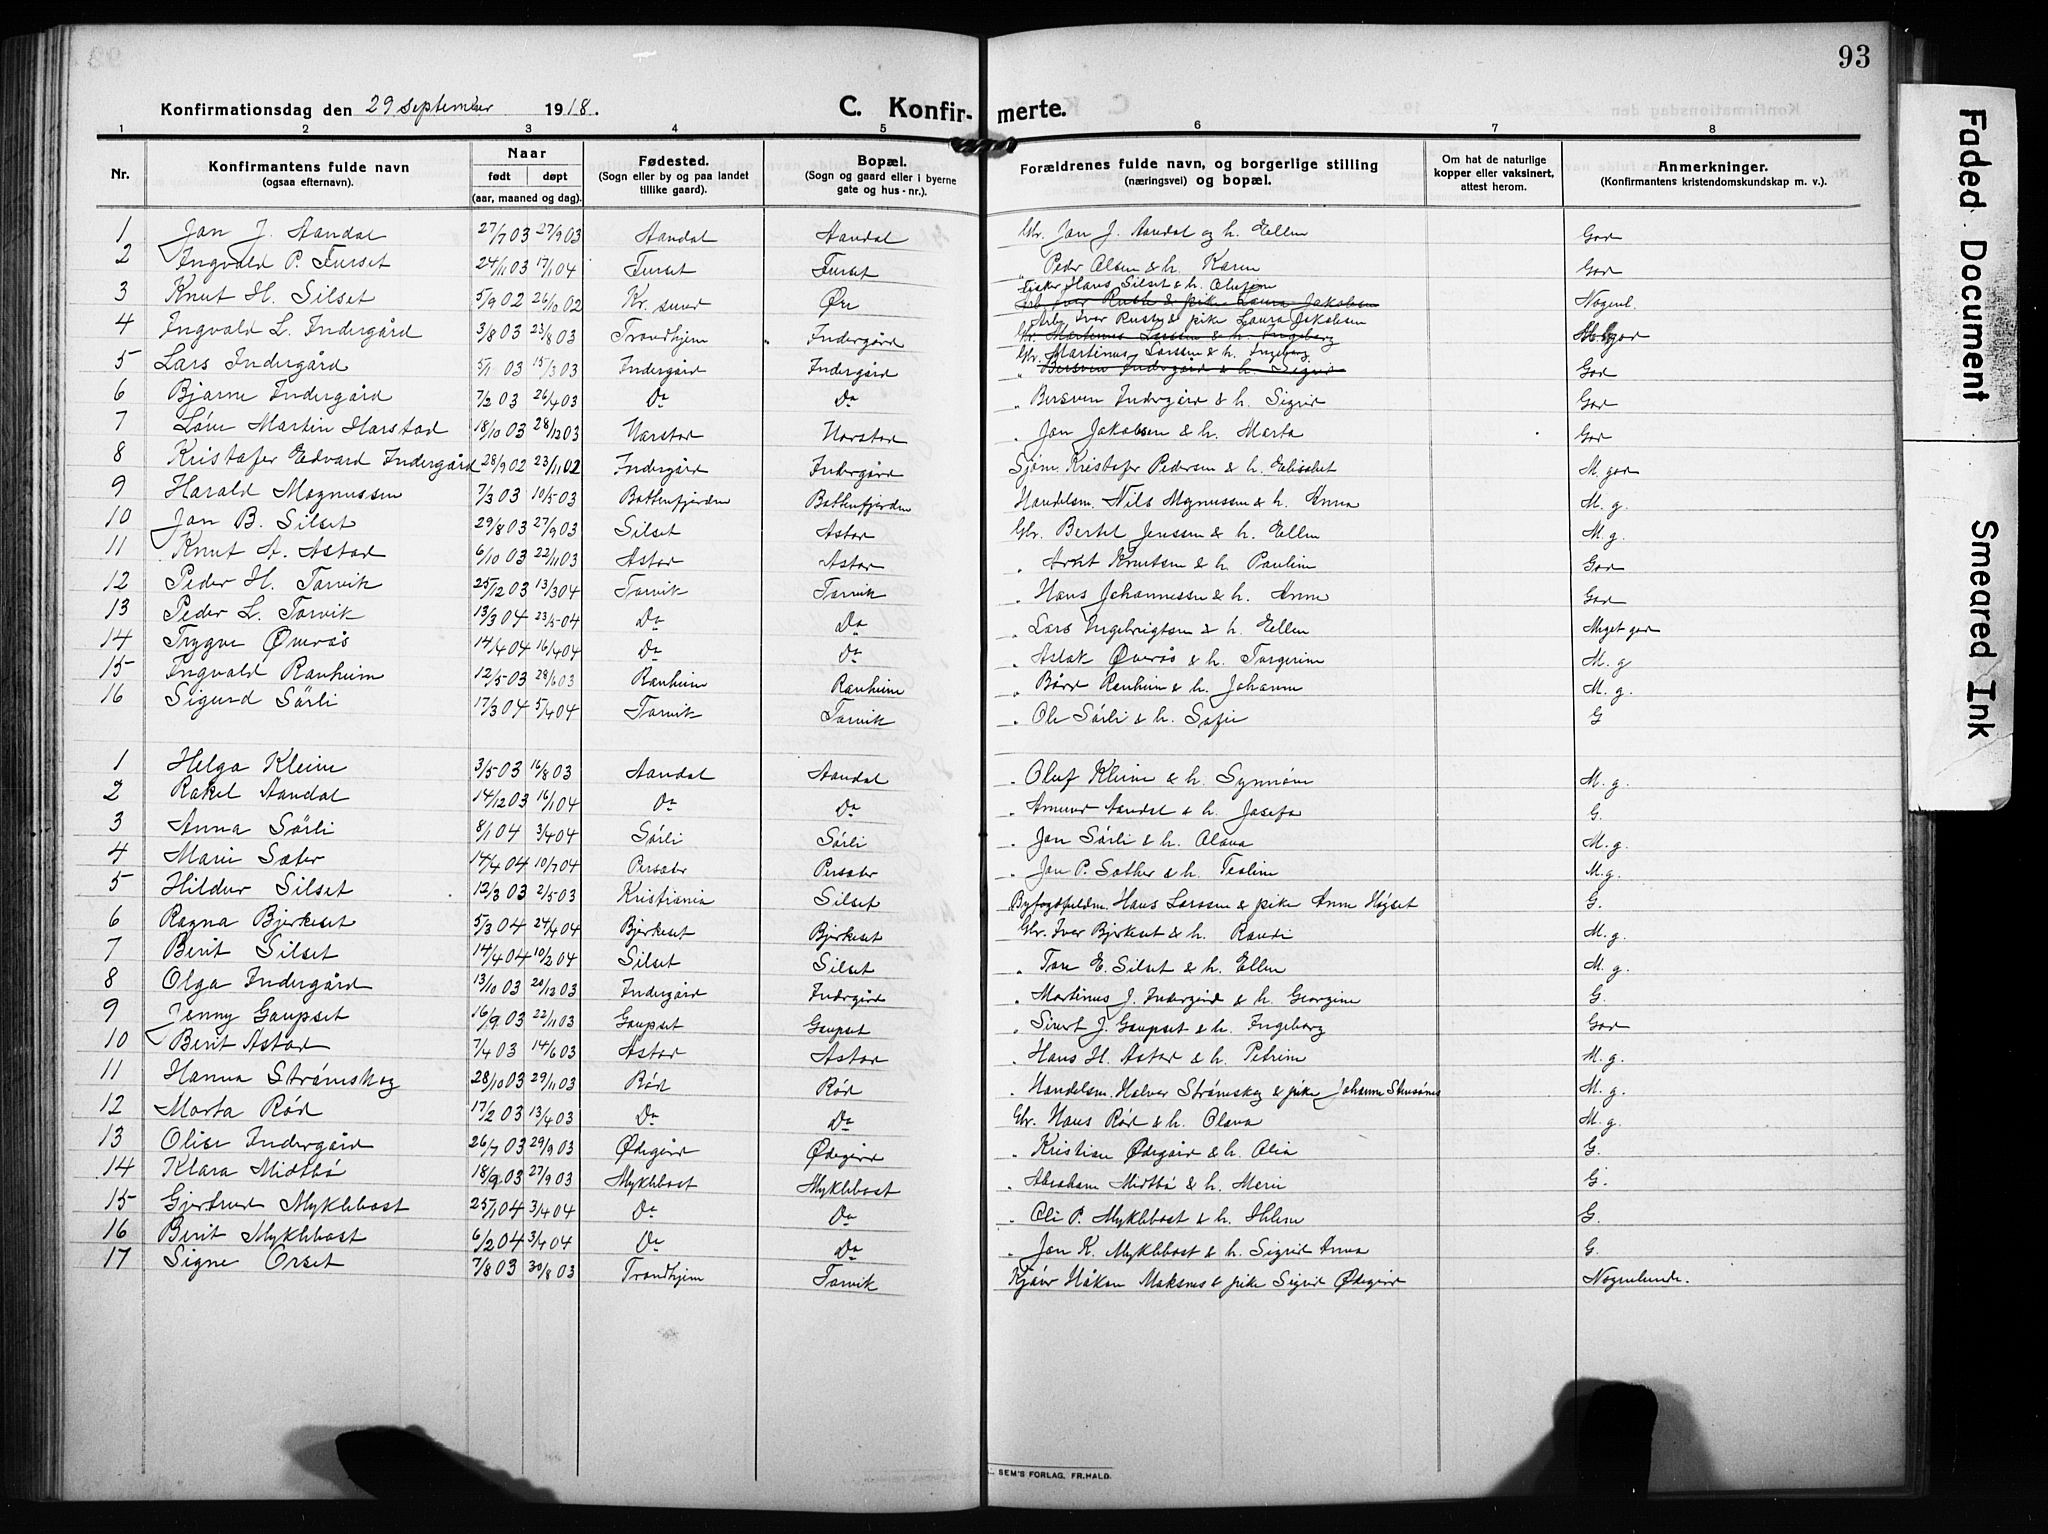 93
Konfirmationsdag den 29 September 1918.
C. Konfir- merte.
1 2 3 4 5 6 7 8
Nr. Konfirmantens fulde navn (ogsaa efternavn). Naar født døpt (aar, maaned og dag). Fødested. (Sogn eller by og paa landet tillike gaard). Bopæl. (Sogn og gaard eller i byerne gate og hus-nr.). Forældrenes fulde navn, og borgerlige stilling (næringsvei) og bopæl. Om hat de naturlige kopper eller vaksinert, attest herom. Anmerkninger. (Konfirmantens kristendomskundskap m. v.).
1 Jon J. Aandal 27/7 03 27/9 03 Aandal Aandal Gbr. Jon J. Aandal og h. Ellen God
2 Ingvald P. Furset 24/11 03 17/1 04 Furset Furset " Peder Olsen & h. Karen God
3 Knut H. Silset 5/9 02 26/10 02 Kr. sund Øre Fisker Hans Silset & h. Olufine Nogenl.
Arb. Iver Rusth & pike Laura Jakobsen
4 Ingvald L. Indergård 3/8 03 23/8 03 Trondhjem Indergård Arb. Iver Rusth & pike Laura Jakobsen M. god
Gbr. Martinus Larssen & h. Ingeborg
5 Lars Indergård 5/1 03 15/3 03 Indergård Indergård Gbr. Martinus Larssen & h. Ingeborg God
" Bersven Indergård & h. Sigrid
6 Bjarne Indergård 7/2 03 26/4 03 Do Do " Bersven Indergård & h. Sigrid God
7 Løve Martin Harstad 18/10 03 28/12 03 Harstad Harstad " Jon Jakobsen & h. Marta God
8 Kristofer Edvard Indergård 28/9 02 23/11 02 Indergård Indergård Sjøm. Kristofer Pedersen & h. Elisabet M. god
9 Harald Magnussen 7/3 03 10/5 03 Battenfjorden Battenfjorden Handelsm. Nils Magnussen & h. Anna M. g.
10 Jon B. Silset 29/8 03 27/9 03 Silset Astad Gbr. Bertel Jenssen & h. Ellen M. g.
11 Knut A. Astad 6/10 03 22/11 03 Astad Astad " Arnt Knutsen & h. Pauline God
12 Peder H. Torvik 25/12 03 13/3 04 Torvik Torvik " Hans Johannessen & h. Anne God
13 Peder L. Torvik 13/3 04 23/5 04 Do Do " Lars Ingebrigtsen & h. Ellen Meget god
14 Trygve Øverås 14/4 04 16/4 04 Do Do " Aslak Øverås & h. Torgerine M. g
15 Ingvald Ranheim 12/5 03 28/6 03 Ranheim Ranheim " Bård Ranheim & h. Johanne M. g.
16 Sigurd Sørli 17/3 04 5/4 04 Torvik Torvik " Ole Sørli & h. Sofie G
1 Helga Kleive 3/5 03 16/8 03 Aandal Aandal " Oluf Kleive & h. Synnøve M. g.
2 Rakel Aandal 14/12 03 16/1 04 Do Do " Amund Aandal & h. Josefa G.
3 Anna Sørli 8/1 04 3/4 04 Sørli Sørli " Jon Sørli & h. Olava M. g.
4 Marie Sæter 14/4 04 10/7 04 Persæter Persæter " Jon P. Sæther & h. Tealine M. g.
5 Hildur Silset 12/3 03 2/5 03 Kristiania Silset Byfogdfuldm. Hans Larssen & pike Anne Høgset G.
6 Ragna Bjerkeset 5/3 04 24/4 04 Bjerkeset Bjerkeset Gbr. Iver Bjerkeset & h. Randi M. g.
7 Berit Silset 14/4 04 10/2 04 Silset Silset " Tore E. Silset & h. Ellen M. g.
8 Olga Indergård 13/10 03 20/12 03 Indergård Indergård " Martinus J. Indergård & h. Georgine G.
9 Jenny Gaupset 16/9 03 22/11 03 Gaupset Gaupset " Sivert J. Gaupset & h. Ingeborg God
10 Berit Astad 7/4 03 14/6 03 Astad Astad " Hans H. Astad & h. Petrine M. g.
11 Hanna Strømskag 28/10 03 29/11 03 Rød Rød " Handelsm. Halvor Strømskag & pike Johanne Stensønes M. g.
12 Marta Rød 17/2 03 13/4 03 Do Do Gbr. Hans Rød & h. Olava M. g.
13 Olise Indergård 26/7 03 29/9 03 Ødegård Ødegård " Kristian Ødegård & h. Olia G.
14 Klara Midtbø 18/9 03 27/9 03 Myklebost Myklebost " Abraham Midtbø & h. Marie G.
15 Gjertrud Myklebost 25/1 04 3/4 04 Do Do " Ole P. Myklebost & h. Helene G.
16 Berit Myklebost 6/2 04 3/4 04 Do Do " Jon K. Myklebost & h. Sigrid Anna G.
17 Signe Orset 7/8 03 30/8 03 Trondhjem Torvik Kjørev Håkon Maksnes & pike Sigrid Ødegård Nogenlunde.
SEM'S FORLAG, FR.HALD.
Faded Document
Smeared Ink